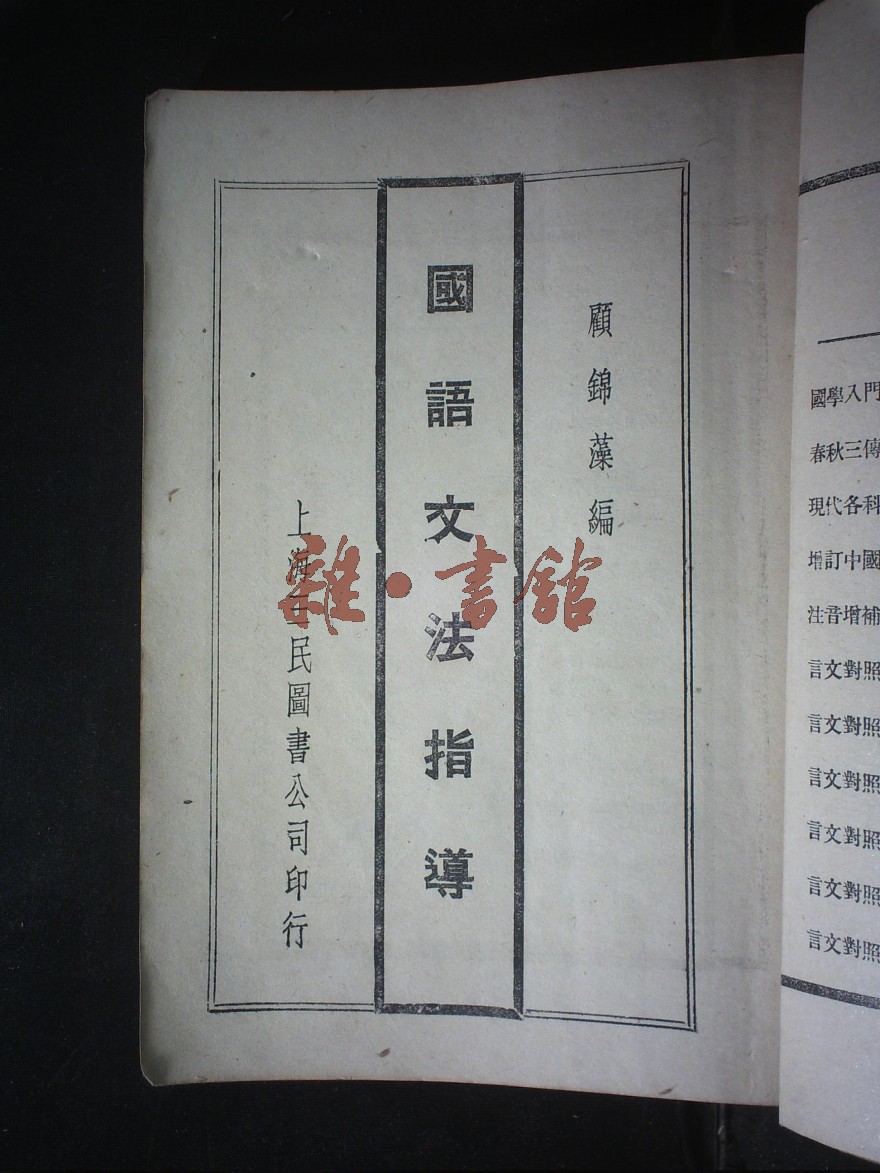 顧錦藻編
國語文法指導
上海三民圖書公司印行
雜·書館
國學入門
春秋三傳
現代各科
增訂中國
注音增補
言文對照
言文對照
言文對照
言文對照
言文對照
言文對照